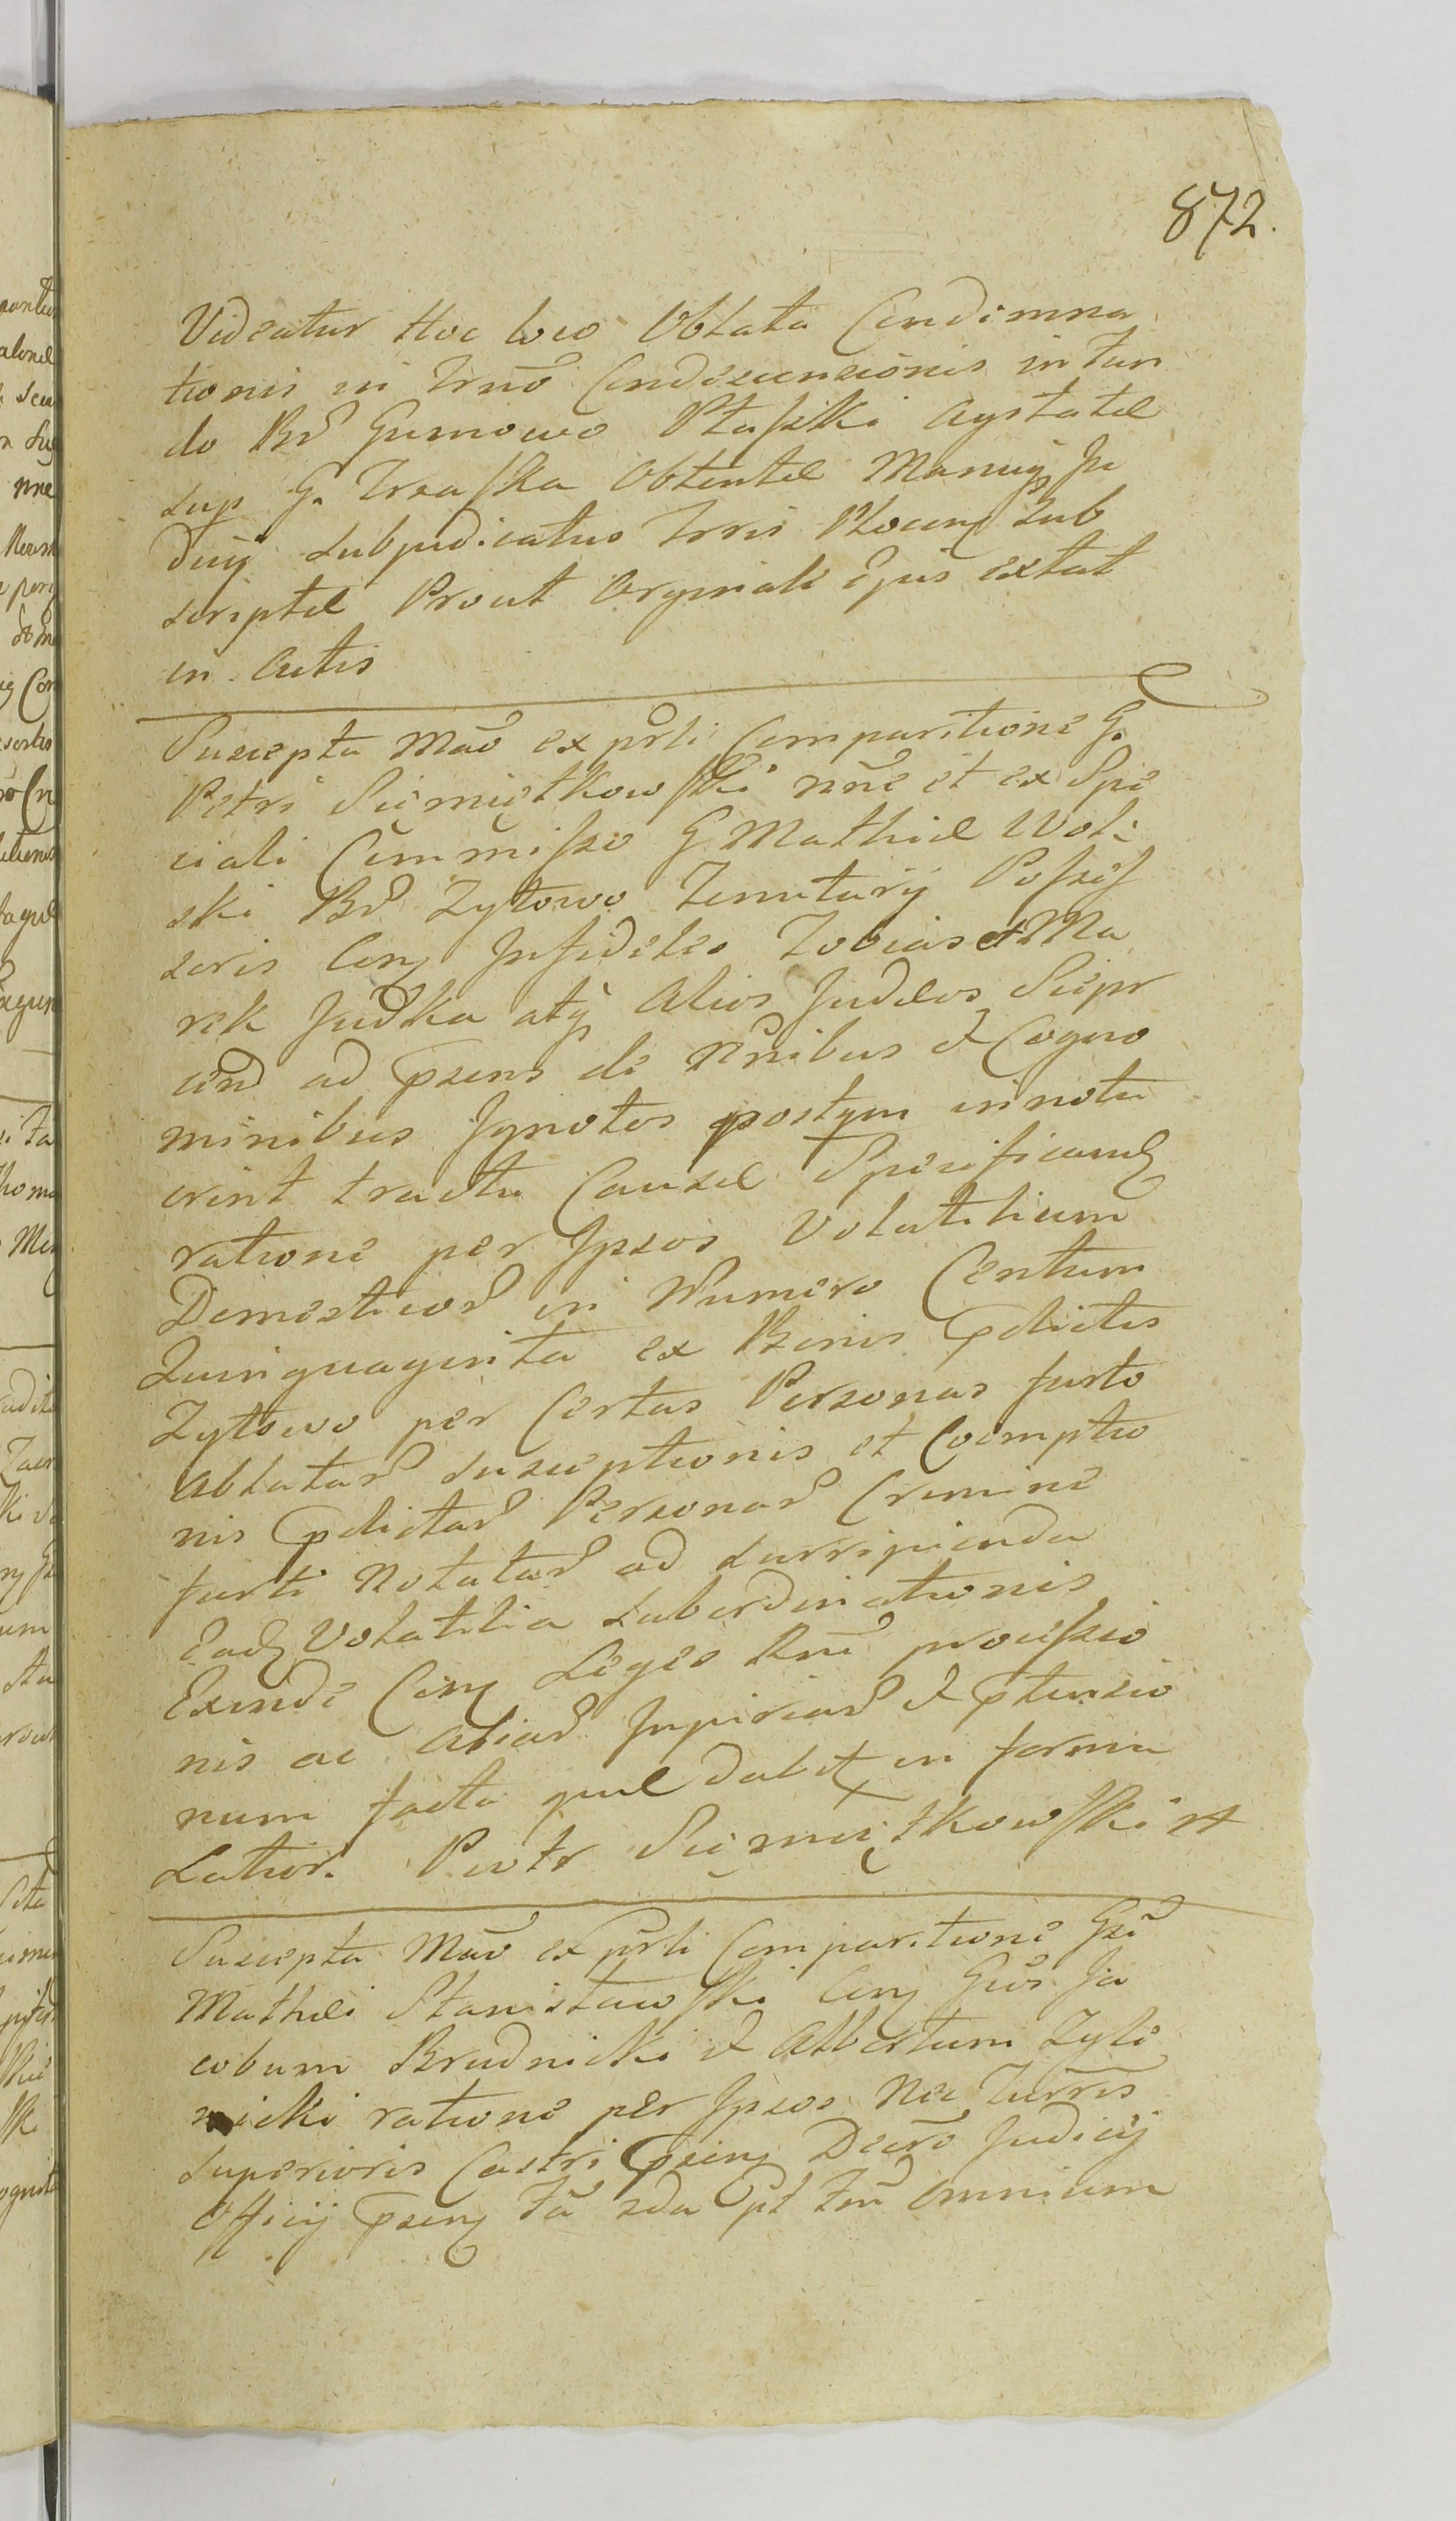 872.
Videatur Hoc loco Oblata Condemna
tionis in Trnõ Condescensionis in fun
do Br̃ Gumowo Ptaszki Agitatæ
sup G. Trzaska Obtentæ Manuq̃ Ju
dicij Subjudicatus Trris Plocen̄ Sub
scriptæ Prout Orginale Ejus extat
in Actis
Suscepta Mãō ex pr̃li Comparitione G.
Petri Siemiętkowski nñe et ex Spe
ciali Commisso G Mathiæ Wol:
ski Br̃ Zytowo Tenutarij Possess
soris Con̄ Infideles Tobias et Ma
rek Judka atq̃ Alios Judæos Siepr
cen̄ ad p̃sens de Nñibus et Cogno
minibus Ignotos postqm innotu
erint tractu Causæ Specificand̄
ratione per Ipsos Volatilium
Domesticor̃ in Numero Centum
Quinquaginta ex Bonis p̃dictis
Zytowo per Certas Personas furto
Ablatar̃ Susceptionis et Coemptio
nis p̃dictar̃ Personar̃ Crimine
furti Notatar̃ ad Surripienda
Ead̄ Volatilia Subordinationis
Exinde Con̄ Leges Rñi processio
nis ac Aliar̃ Inpiriar̃ et p̃tensio
num facta quæ dabit̃ in forma
Latior. Piotr Siemiętkowski
Suscepta Mãō ex pr̃li Comparitione Gsi
Mathei Stanisławski Con̄ Gsõs Ja
cobum Brudnicki et Albertum Zyli
nicki ratione per Ipsos Nec Turris
Superioris Castri p̃sen̄ Decrõ Judicij
Officij p̃sen̄ Omnium